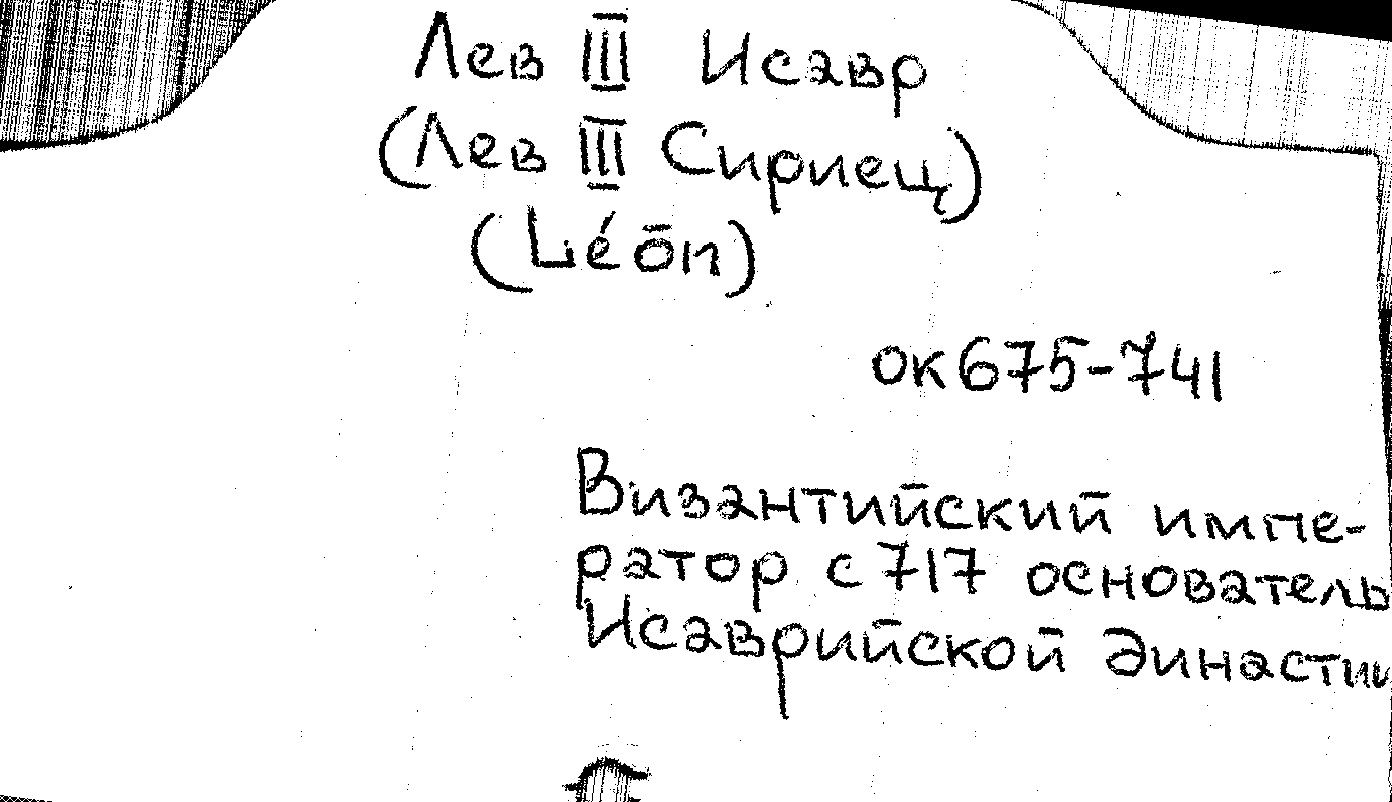 Лев III Исавр
(Лев III Сириец)
(Léōn)
ок 675-741
Византийский импе-
ратор с 717 основатель
Исаврийской династии